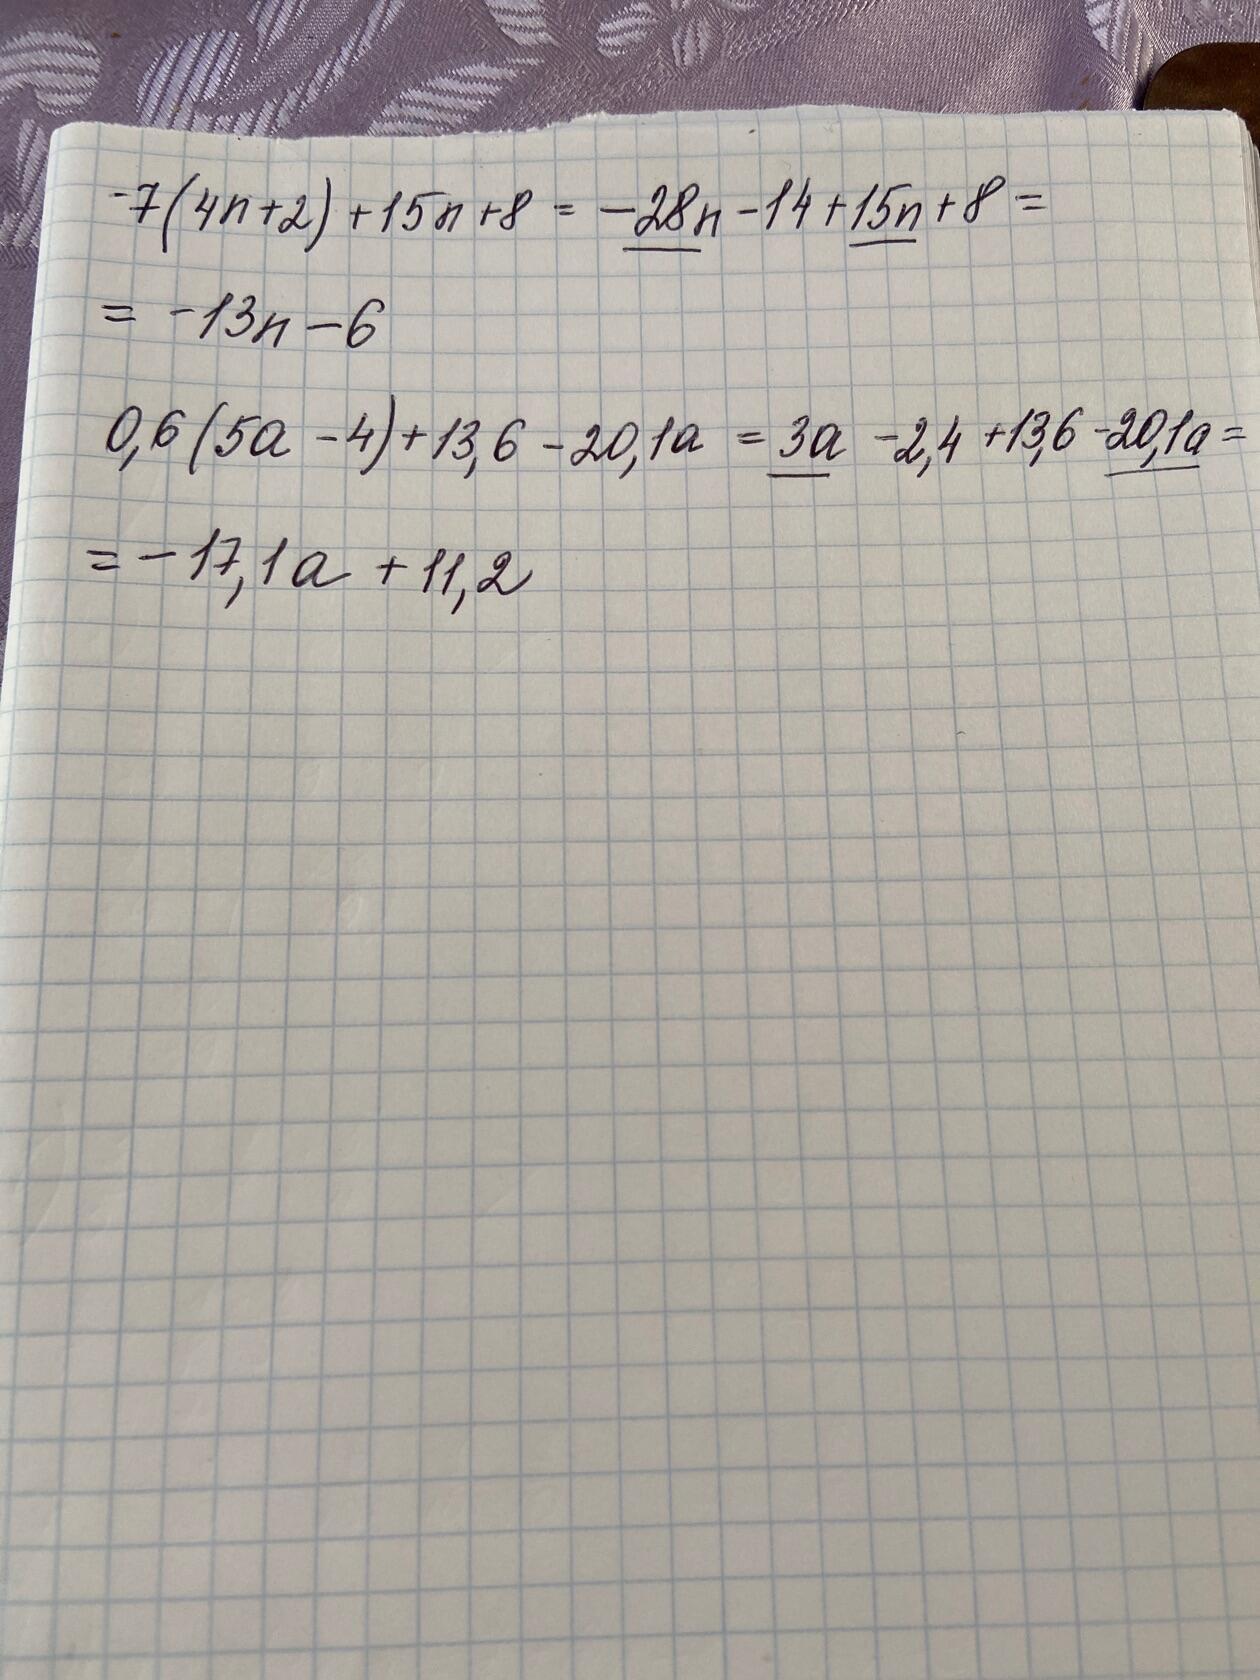 -7(4n+2)+15n+8 = -28n-14+15n+8 =
= -13n-6
0,6(5a-4)+13,6-20,1a = 3a -2,4+13,6-20,1a =
= -17,1a + 11,2